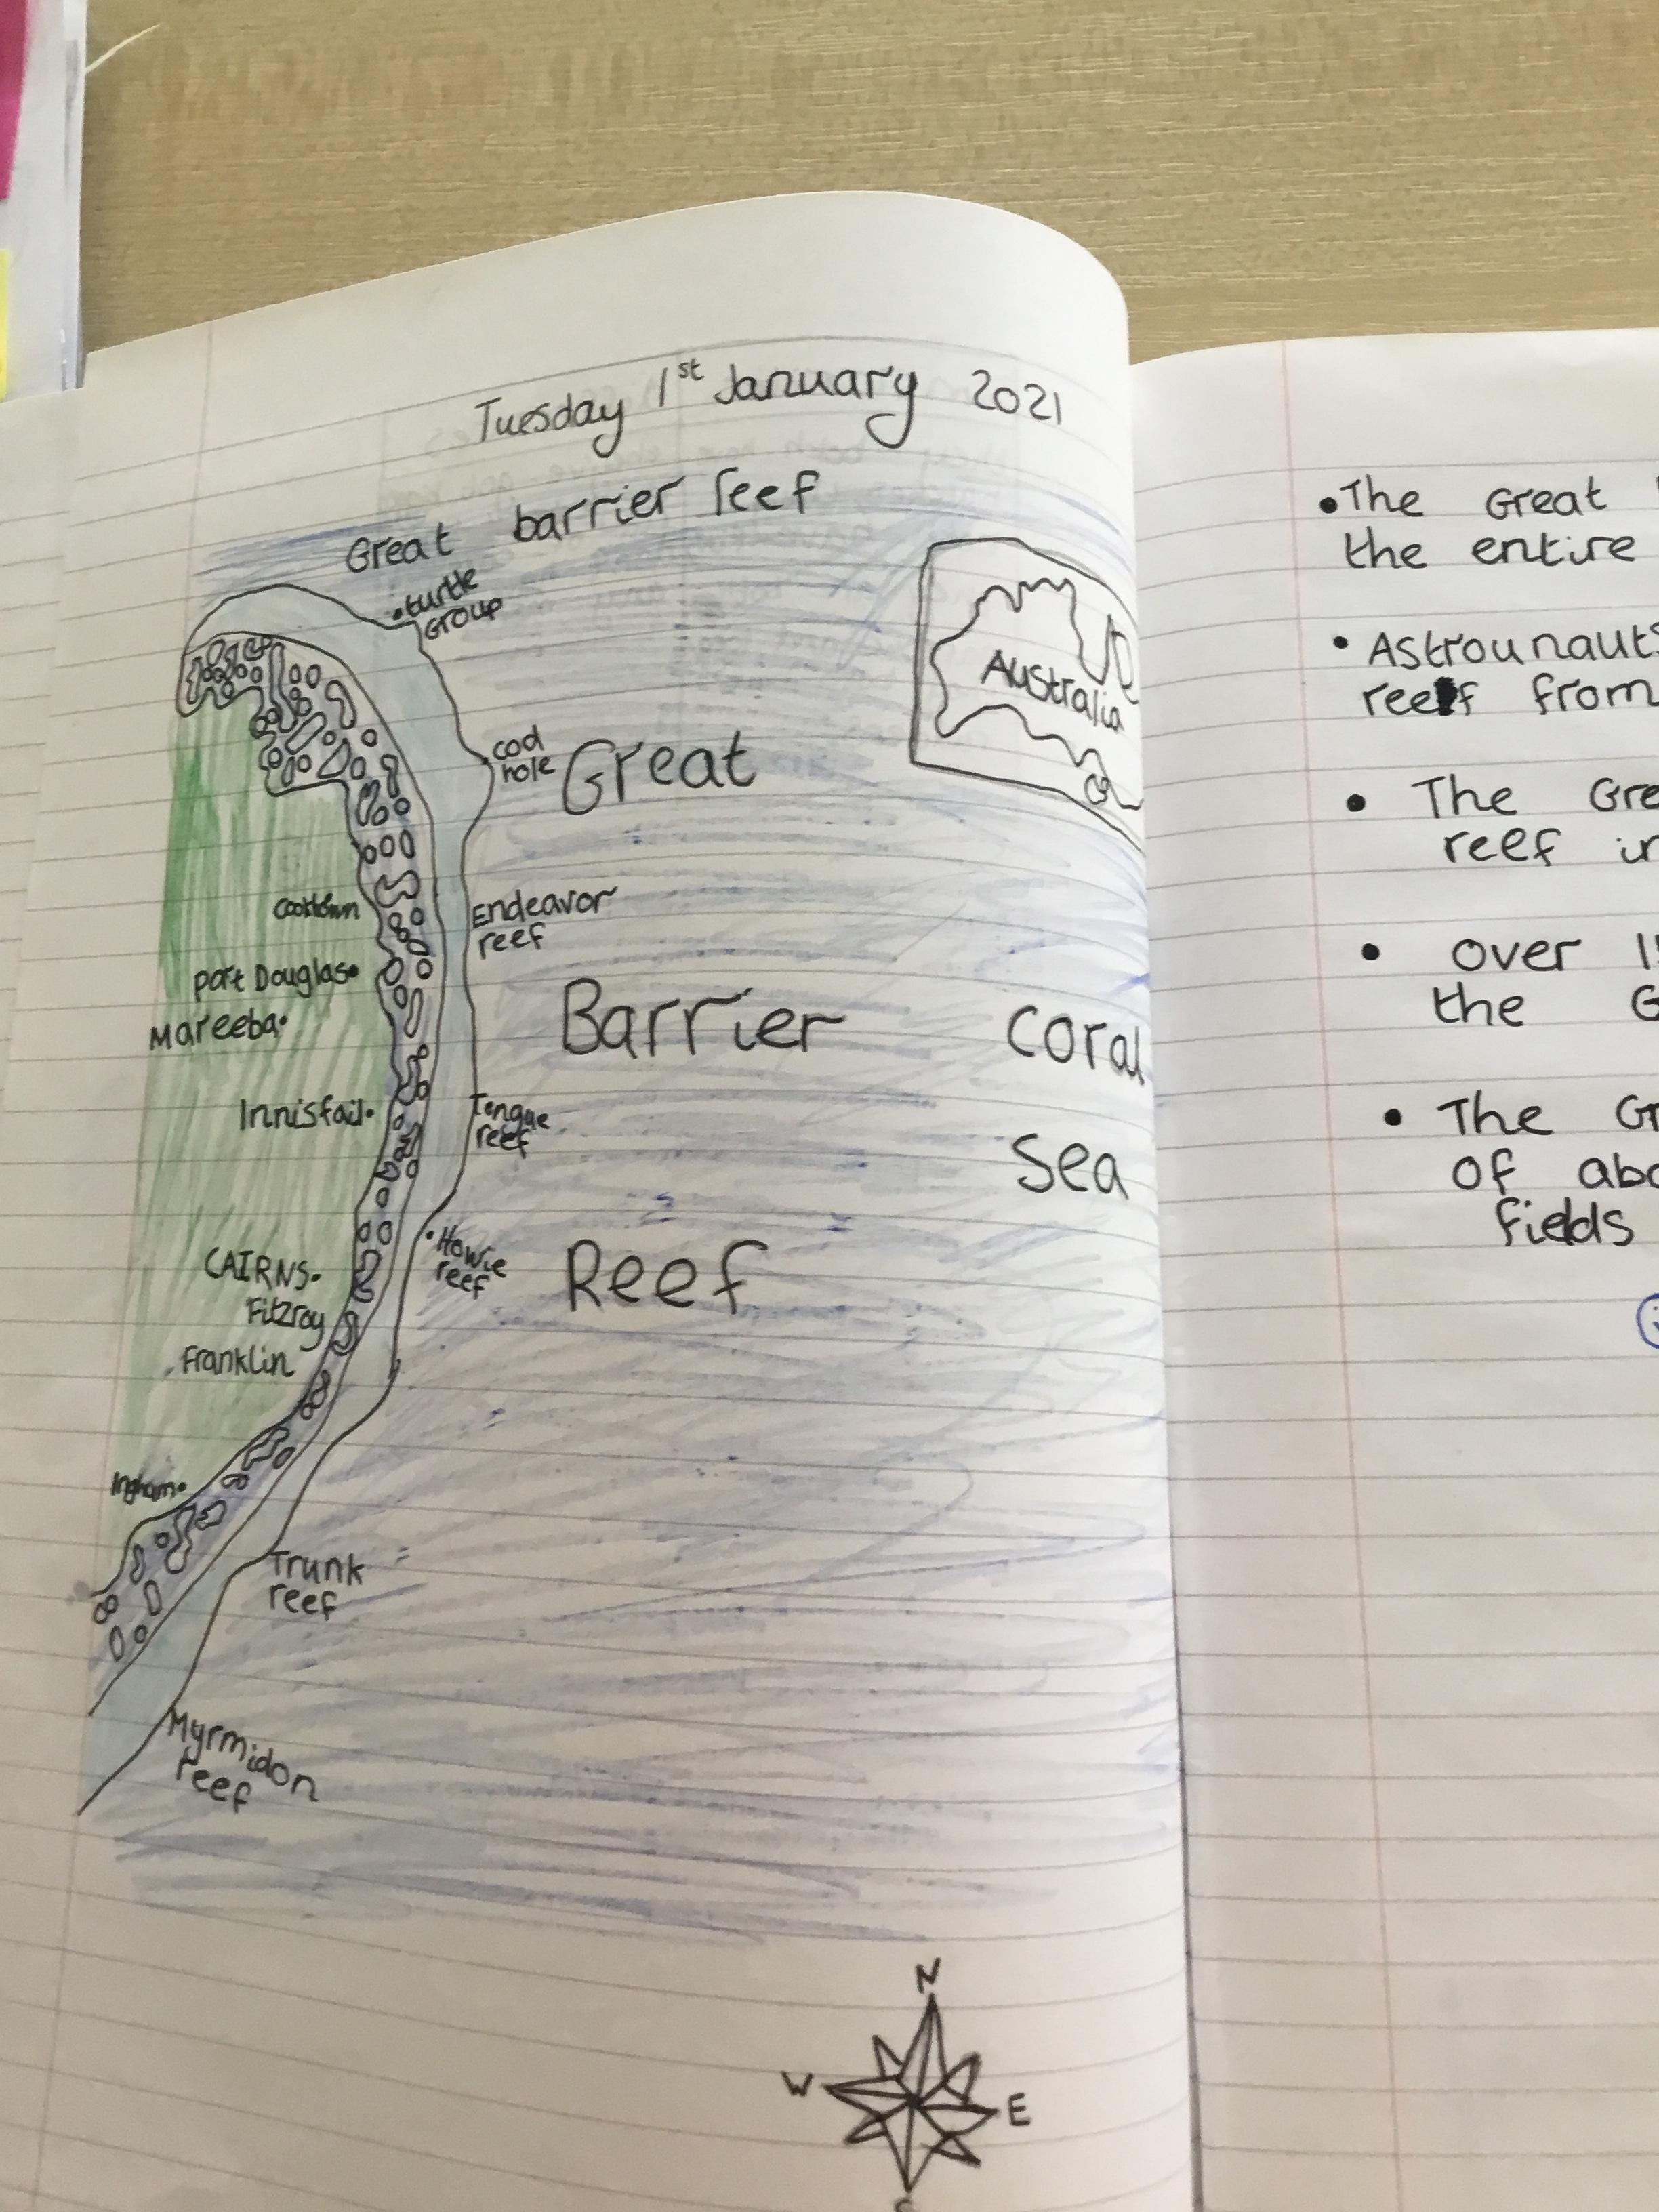 Tuesday 1st January 2021
Great barrier reef
turtle
Group
Australia
cod
hole
Great
Cooktown
Endeavor
reef
Port Douglas
Mareeba
Barrier
Coral
Innisfail
Tongue
reef
Sea
CAIRNS
Howie
reef
Reef
Fitzroy
Franklin
Ingham
Trunk
reef
Myrmidon
reef
N
W
E
S
• The Great
the entire
• Astrounauts
reef from
• The Gre
reef in
• over 1
the G
• The Gr
of abo
fields